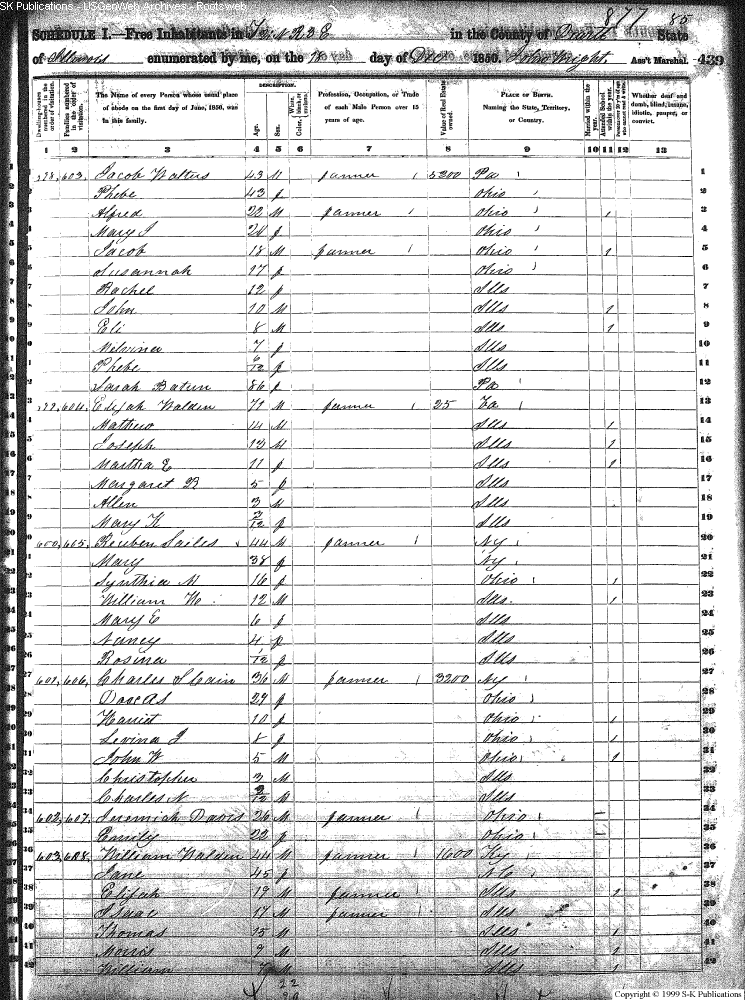 SK Publications - USGenWeb Archives - Rootsweb
877 85
SCHEDULE I.—Free Inhabitants in T 2 N R 3 E in the County of State
of Illinois enumerated by me, on the day of Dec 1850. John Wright, Ass't Marshal. 439
Dwelling-houses numbered in the order of visitation. Families numbered in the order of visitation. The Name of every Person whose usual place of abode on the first day of June, 1850, was in this family. DESCRIPTION. Age. Sex. Color, White, black, or mulatto. Profession, Occupation, or Trade of each Male Person over 15 years of age. Value of Real Estate owned. PLACE OF BIRTH. Naming the State, Territory, or Country. Married within the year. Attended School within the year. Persons over 20 y'rs of age who cannot read & write. Whether deaf and dumb, blind, insane, idiotic, pauper, or convict.
1 2 3 4 5 6 7 8 9 10 11 12 13
1 598 603 Jacob Walters 43 M farmer 5200 Pa 1
2 Phebe 43 f Ohio 2
3 Alfred 22 M farmer Ohio 1 3
4 Mary J 20 f Ohio 4
5 Jacob 18 M farmer Ohio 1 5
6 Susannah 17 f Ohio 6
7 Rachel 12 f Ills 7
8 John 10 M Ills 1 8
9 Eli 8 M Ills 1 9
10 Melvina 7 f Ills 10
11 Phebe 6/12 f Ills 11
12 Sarah 86 f Pa 12
13 599 604 Elijah Walden 71 M farmer 25 Va 13
14 Mathew 14 M Ills 1 14
15 Joseph 13 M Ills 1 15
16 Martha E 11 f Ills 1 16
17 Margaret B 5 f Ills 17
18 Allen 3 M Ills 18
19 Mary K 2/12 f Ills 19
20 600 605 Reuben Sailes 44 M farmer Ny 20
21 Mary 38 f Ny 21
22 Synthia M 16 f Ohio 1 22
23 William W 12 M Ills 1 23
24 Mary E 6 f Ills 24
25 Nancy 4 f Ills 25
26 Rosina 1/12 f Ills 26
27 601 606 Charles S Cain 36 M farmer 3200 Ny 27
28 Dorcas 29 f Ohio 28
29 Harriet 10 f Ohio 1 29
30 Levina J 8 f Ohio 1 30
31 John W 5 M Ohio 1 31
32 Christopher 3 M Ills 32
33 Charles N M Ills 33
34 602 607 Jeremiah Davis 26 M farmer Ohio 34
35 Emily 22 f Ohio 35
36 603 608 William Walden 44 M farmer 1600 Ky 36
37 Jane 45 f N C 37
38 Elijah 19 M farmer Ills 1 38
39 Isaac 17 M farmer Ills 39
40 Thomas 15 M Ills 1 40
41 Morris 9 M Ills 1 41
42 William 7 M Ills 1 42
22
Copyright © 1999 S-K Publications